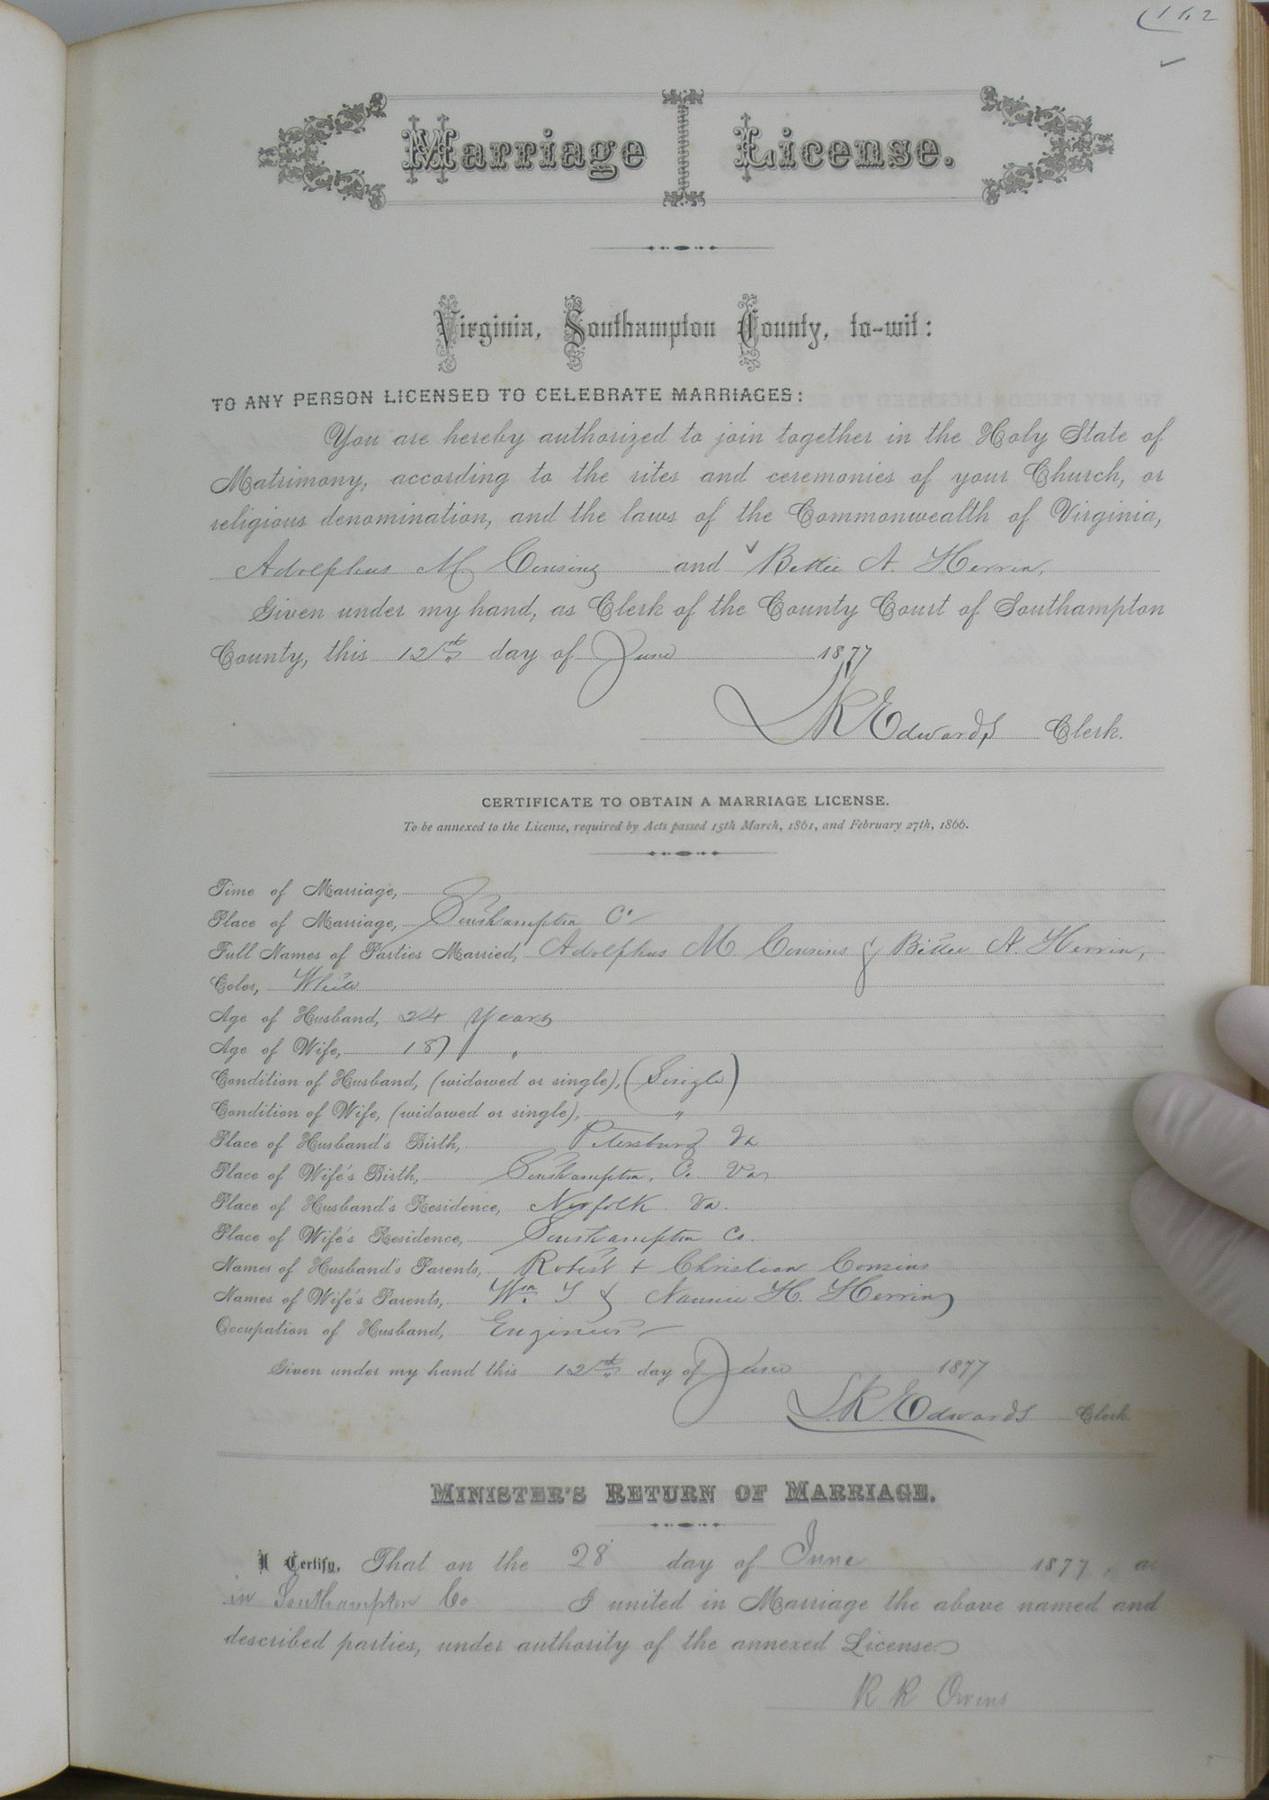 162
Marriage License.
Virginia, Southampton County, to-wit:
TO ANY PERSON LICENSED TO CELEBRATE MARRIAGES:
You are hereby authorized to join together in the Holy State of
Matrimony, according to the rites and ceremonies of your Church, or
religious denomination, and the laws of the Commonwealth of Virginia,
Adolphus M Cousins and Bettie A. Herrin,
Given under my hand, as Clerk of the County Court of Southampton
County, this 12th day of June 1877
L R Edwards Clerk.
CERTIFICATE TO OBTAIN A MARRIAGE LICENSE.
To be annexed to the License, required by Acts passed 15th March, 1861, and February 27th, 1866.
Time of Marriage,
Place of Marriage, Southampton Co
Full Names of Parties Married, Adolphus M. Cousins & Bettie A. Herrin,
Color, White
Age of Husband, 24 Years
Age of Wife, 18 "
Condition of Husband, (widowed or single), (Single)
Condition of Wife, (widowed or single), "
Place of Husband's Birth, Petersburg Va
Place of Wife's Birth, Southampton, Co Va
Place of Husband's Residence, Norfolk Va.
Place of Wife's Residence, Southampton Co.
Names of Husband's Parents, Robert & Christian Cousins
Names of Wife's Parents, Wm. T & Nannie H. Herrin
Occupation of Husband, Engineer
Given under my hand this 12th day of June 1877
L. R. Edwards Clerk
MINISTER'S RETURN OF MARRIAGE.
I Certify, That on the 28 day of June 1877, at
in Southampton Co I united in Marriage the above named and
described parties, under authority of the annexed License
R R Owens